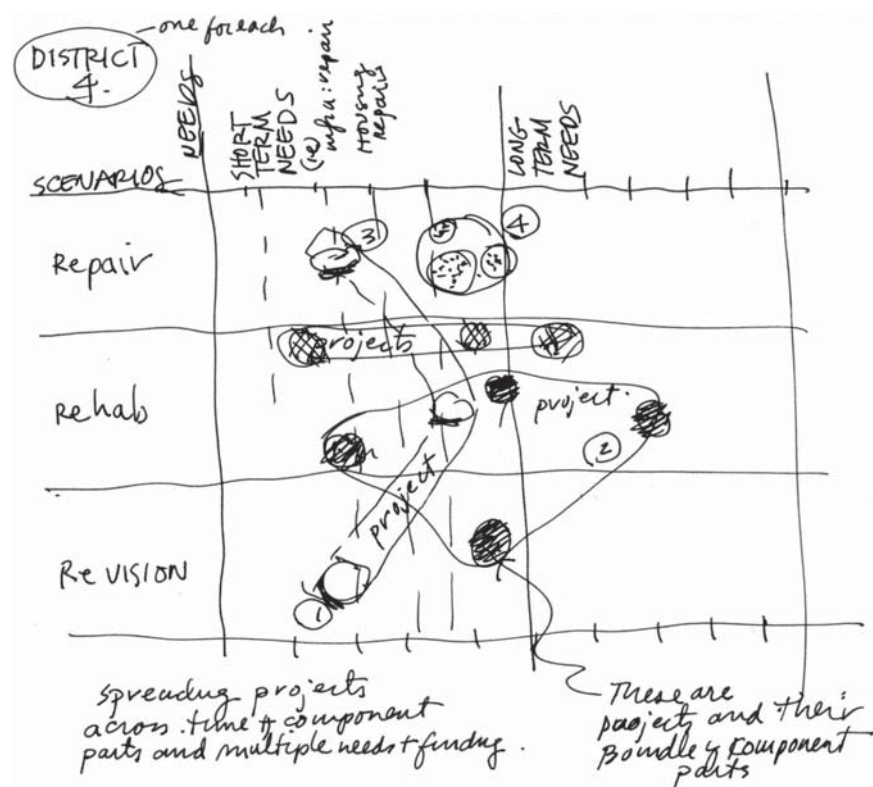 one for each
DISTRICT
4.
NEEDS
SHORT
TERM
NEEDS
(ie)
infra: repair
HOUSING
repairs
LONG-
TERM
NEEDS
SCENARIOS
Repair
3
4
projects
Rehab
project.
2
project
Re VISION
1
spreading projects
across time + component
parts and multiple needs + funding.
These are
project and their
component
parts